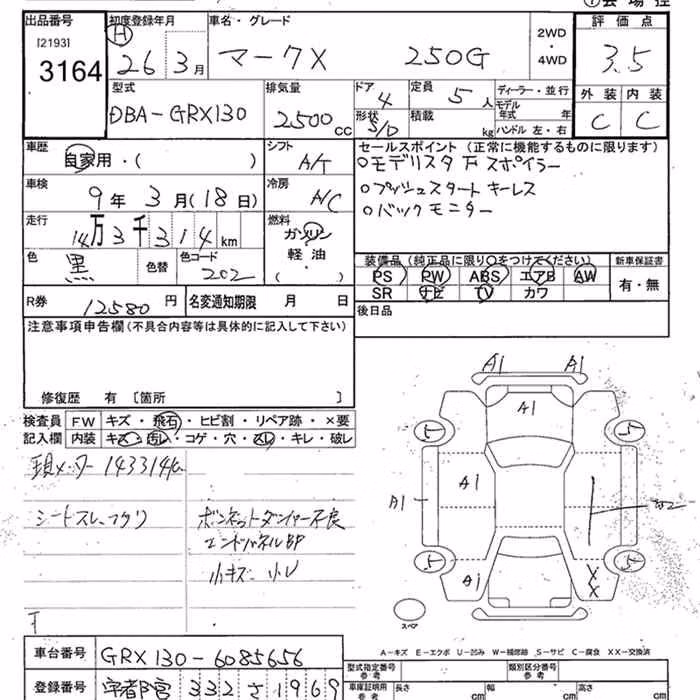 出品番号 初度登録年月 車名・グレード 評価点
[2193] Ⓗ 2WD
3164 26 3月 マークX 250G ・ 3.5
4WD
型式 排気量 ドア 4 定員 5人 ディーラー・並行 外装 内装
DBA-GRX130 2500cc 形状 S/D 積載 kg モデル年式 年 C C
ハンドル 左・右
車歴 自家用・( ) シフト A/T セールスポイント (正常に機能するものに限ります)
○モデリスタ F スポイラー
車検 9年 3月(18日) 冷房 A/C ○プッシュスタートキーレス
○バックモニター
走行 14万3千314km 燃料 ガソリン
軽油
( )
色 黒 色替 色コード 202 装備品 (純正品に限り○をつけてください) 新車保証書
PS PW ABS エアB AW 有・無
SR ナビ TV カワ
R券 12580円 名変通知期限 月 日 後日品
注意事項申告欄 (不具合内容等は具体的に記入して下さい)
修復歴 有 〔箇所 〕
検査員 FW キズ・飛石・ヒビ割・リペア跡・×要
記入欄 内装 キズ・汚れ・コゲ・穴・スレ・キレ・破レ
現メーター 143314km
シートスレ、フクリ ボンネットダンパー不良
エンドパネルBP
小キズ 小U
A1 A1
A1
5 5
A1 A1
5 5
A1 XX
スペア
A-キズ E-エクボ U-凹み W-補修跡 S-サビ C-腐食 XX-交換済
車台番号 GRX130-6085656
型式指定番号 参考 類別区分番号 参考
登録番号 宇都宮 332 さ 1969 車庫証明用 参考 長さ cm 幅 cm 高さ cm